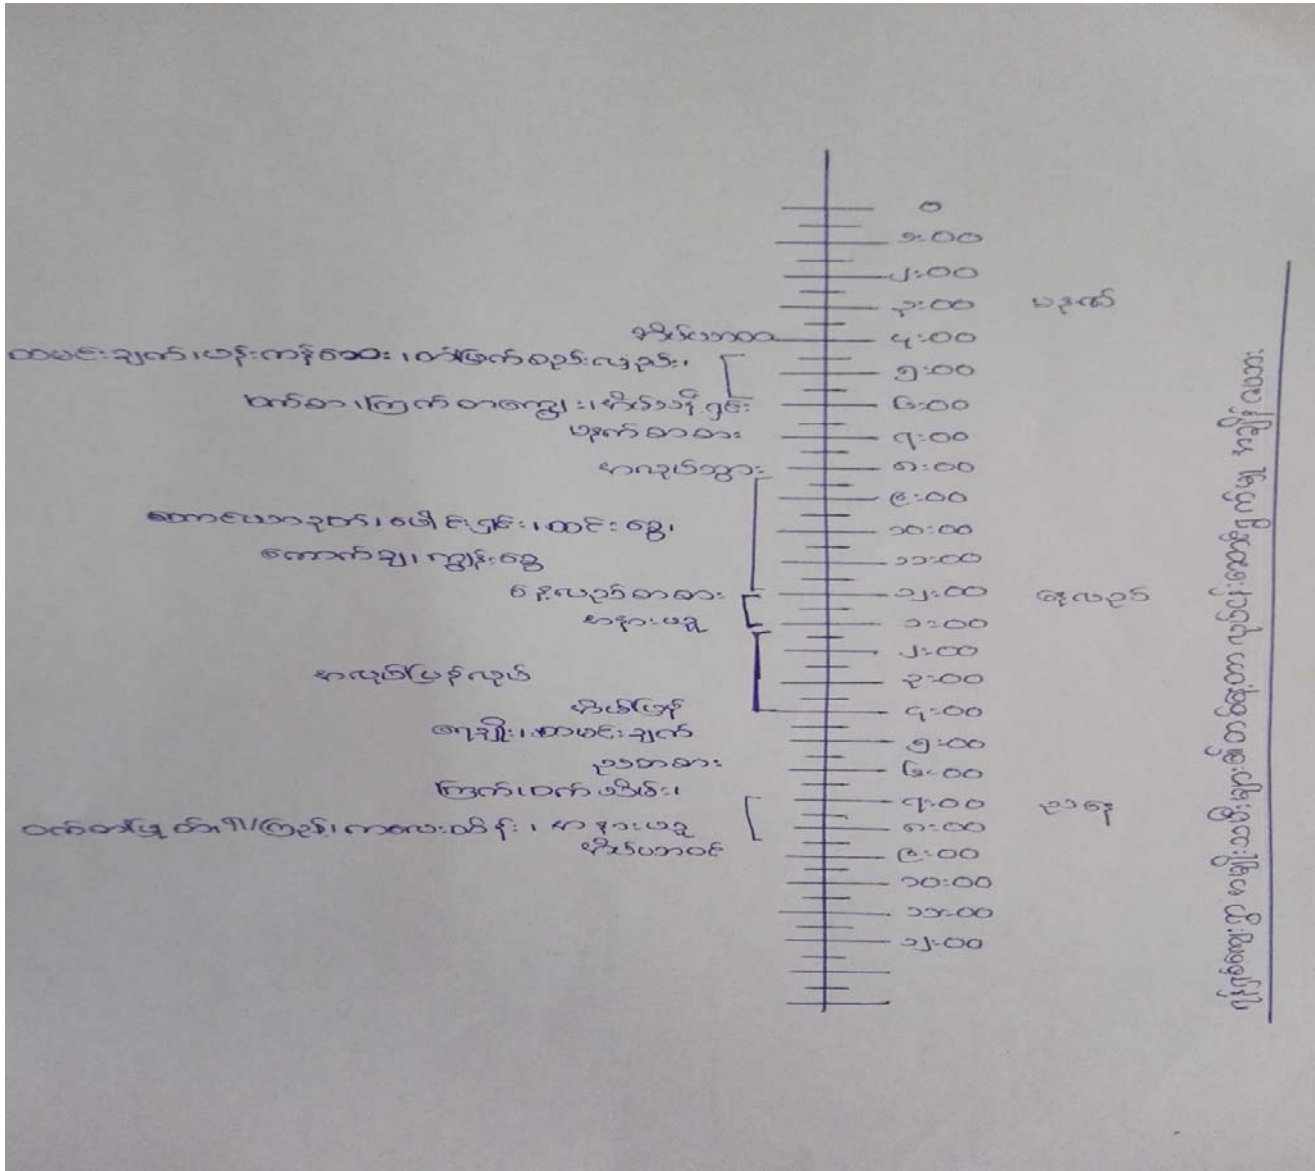 ၀
၁:၀၀
၂:၀၀
၃:၀၀ မနက်
အိပ်ယာထ ၄:၀၀
ထမင်းချက်၊ ပန်းကန်ဆေး၊ တံမြက်စည်းလှည်း၊
၅:၀၀
ဝက်စာ၊ ကြက်စာကျွေး၊ အိမ်သန့်ရှင်း ၆:၀၀
မနက်စာစား ၇:၀၀
အလုပ်သွား ၈:၀၀
၉:၀၀
တောင်ယာခုတ်၊ ပေါင်းရှင်း၊ ထင်းခွေ၊ ၁၀:၀၀
ကောက်ချ၊ ကျွန်းခွေ ၁၁:၀၀
နေ့လည်စာစား ၁၂:၀၀ နေ့လည်
အနားယူ ၁:၀၀
၂:၀၀
အလုပ်ပြန်လုပ် ၃:၀၀
အိမ်ပြန် ၄:၀၀
ရေချိုး၊ ထမင်းချက် ၅:၀၀
ညစာစား ၆:၀၀
ကြက်၊ ဝက်သိမ်း၊
၇:၀၀ ညနေ
ကလေးထိန်း၊ အနားယူ ၈:၀၀
အိပ်ယာဝင် ၉:၀၀
၁၀:၀၀
၁၁:၀၀
၁၂:၀၀